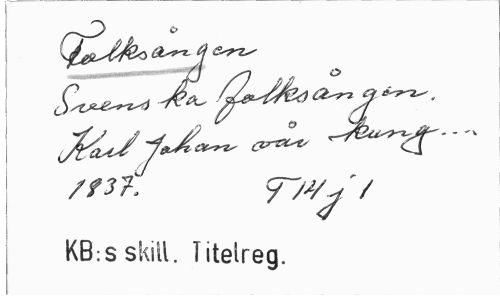 Folksången
Svenska folksången.
Karl Johan vår kung...
1837. T 14 j 1
KB:s skill. Titelreg.